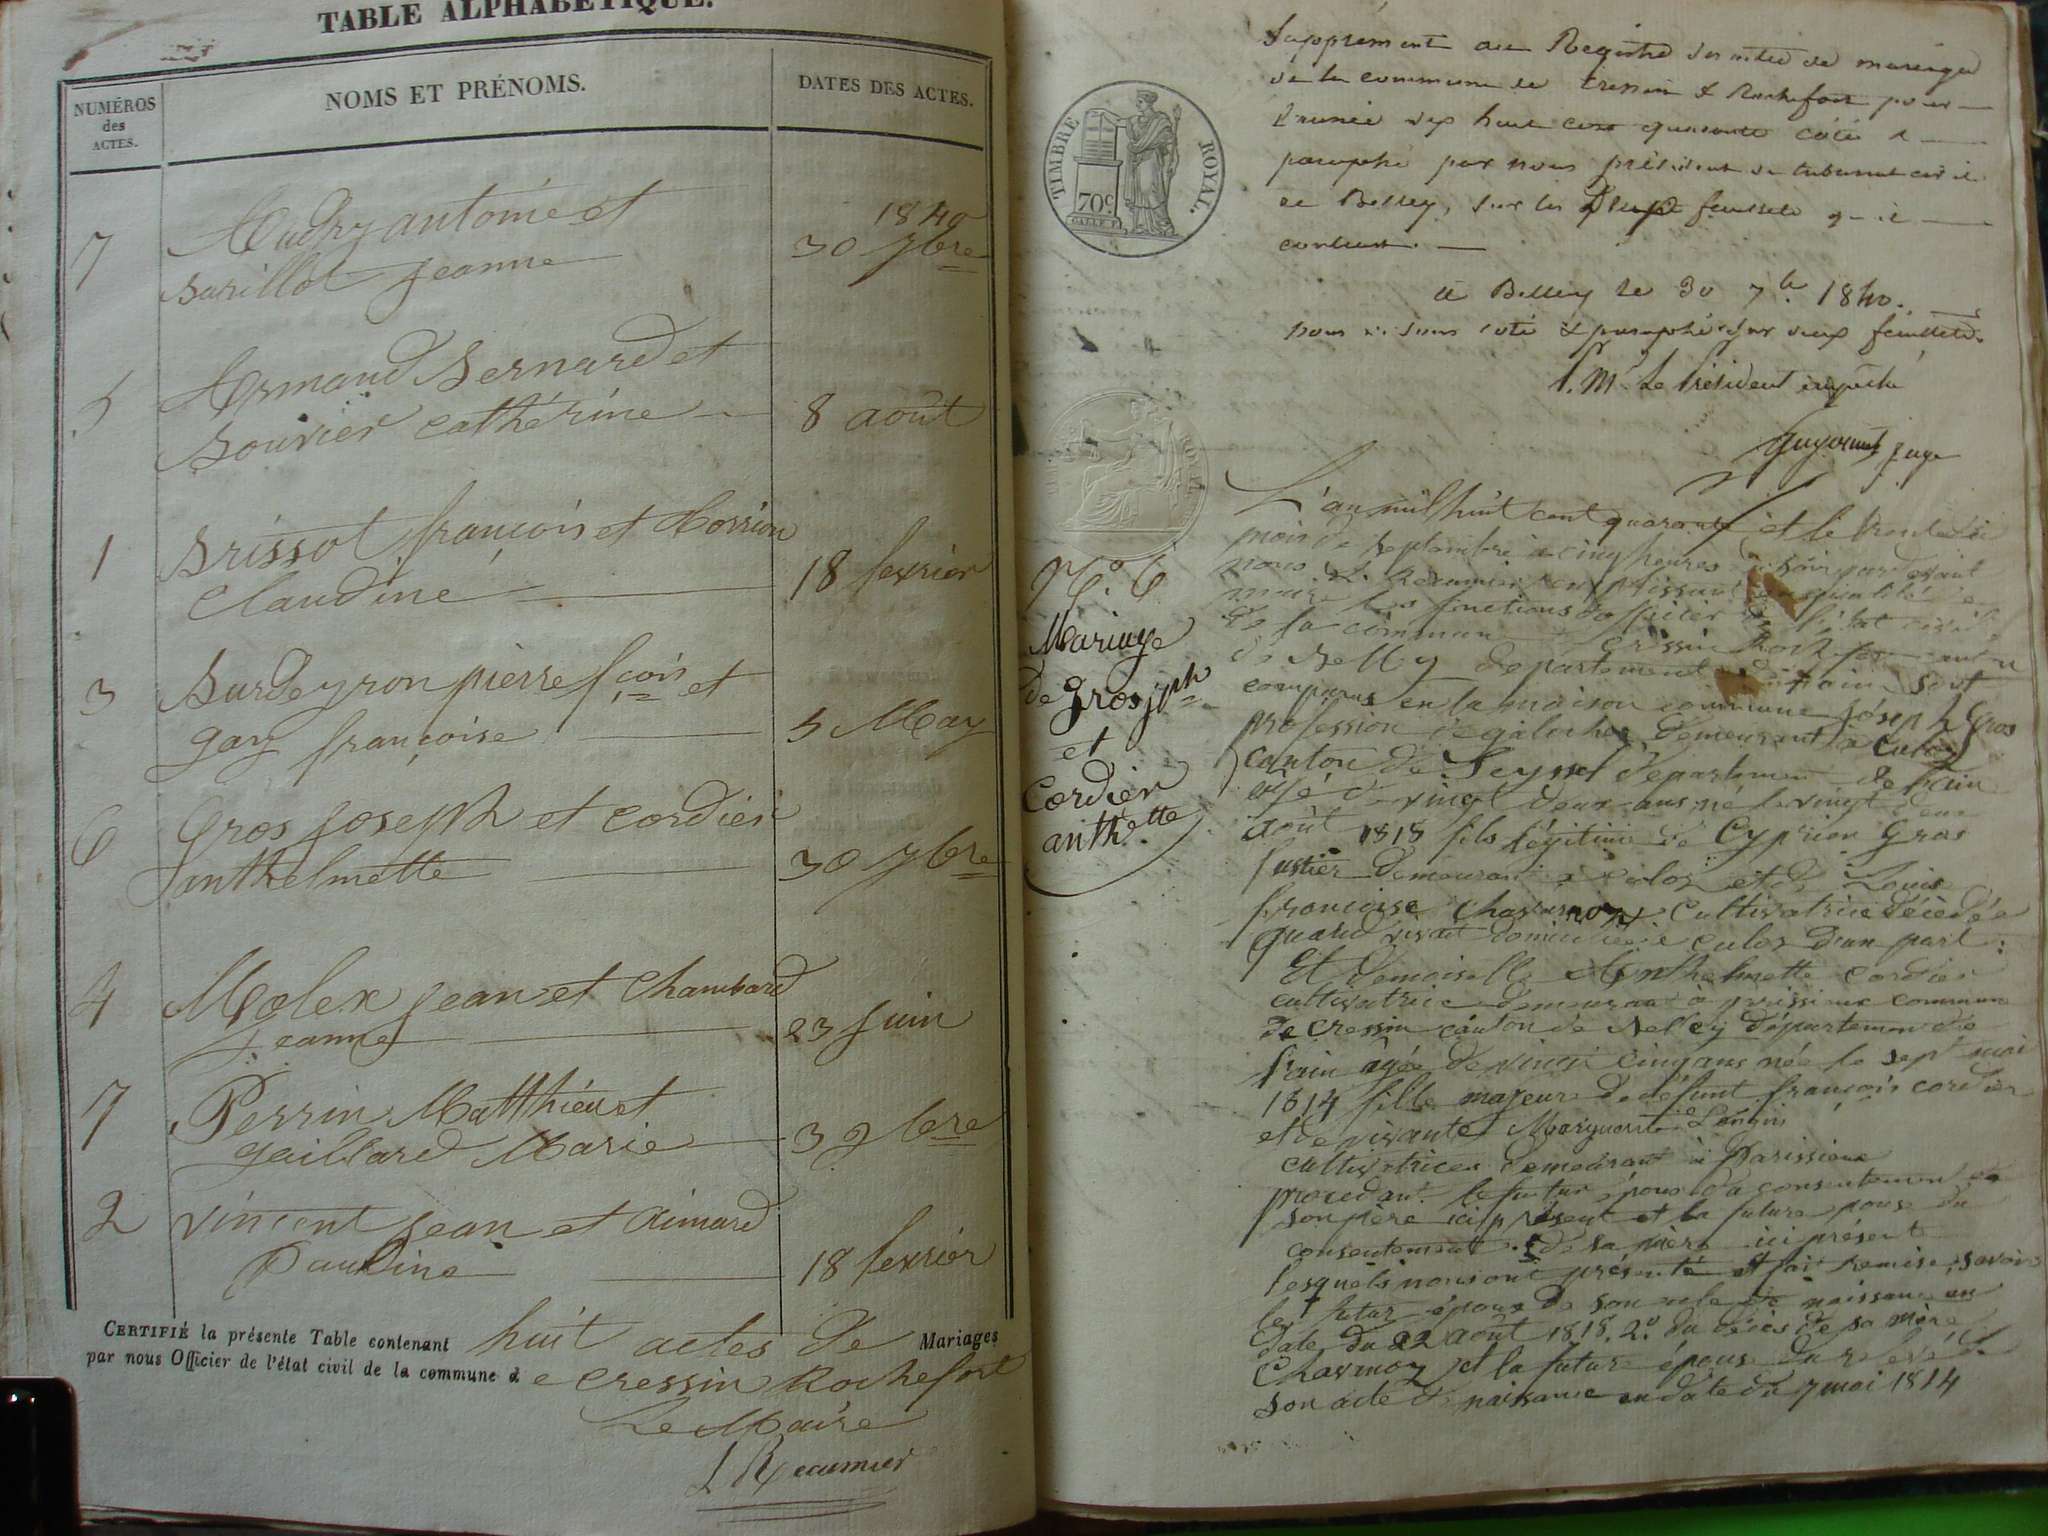 TABLE ALPHABÉTIQUE.
NUMÉROS
des
ACTES.
NOMS ET PRÉNOMS.
DATES DES ACTES.
1840
7 Audry antoine et 30 7bre
Burillot Jeanne
5 Armand Bernard et
Bouvier Cathérine 8 août
1 Brissot françois et Morrion
Claudine 18 fevrier
3 Burdeyron pierre fçois et
gay françoise 5 May
6 Gros Joseph et Cordier
Anthelmette 30 7bre
4 Molex Jean et Chambard
Jeanne 23 Juin
7 Perrin Matthieu et
gaillard Marie 3 9bre
2 Vincent Jean et Aimard
Pauline 18 fevrier
CERTIFIÉ la présente Table contenant huit actes de Mariages
par nous Officier de l'état civil de la commune de Cressin Rochefort
Le Maire
L Recumier
TIMBRE ROYAL.
70c
Supplément au Registre des actes de mariage
de la commune de Cressin & Rochefort pour
l'année dix huit cent quarante côté &
paraphé par nous président du tribunal civil
de Belley, sur les deux feuillets qu'il
contient.
à Belley le 30 7bre 1840.
nous avons coté & paraphé sur deux feuillets.
P. Mr Le Président empêché
juge
N.o 6
Mariage
de Gros jph
et
Cordier
anthtte
L'an mil huit cent quarante et le trente du
mois de septembre à cinq heures du soir par devant
nous L. Recumier remplissant en qualité de
maire les fonctions d'officier de l'état civil
de la commune de Cressin Rochefort canton
de Belley département de l'ain sont
comparus en la maison commune Joseph Gros
profession de galocher demeurant à Culoz
canton de Seyssel département de l'ain
âgé de vingt deux ans né le vingt deux
août 1818 fils légitime de Cyprien Gros
fustier demeurant à Culoz et de Louise
françoise Chavarnoz Cultivatrice décédée
quand vivait domiciliée à Culoz d'un part:
Et demoiselle Anthelmette Cordier
cultivatrice demeurant à prissieux commune
de Cressin canton de Belley département de
l'ain âgée de vingt cinq ans née le sept mai
1814 fille majeure de défunt françois cordier
et de vivante Marguerite
cultivatrice demeurant à Parissieux
procedant le futur époux du consentement de
son père ici présent et la future épouse du
consentement de sa mère ici présente
lesquels nous ont présenté et fait remise, savoir
le futur époux de son acte de naissance en
date du 22 août 1818. 2o du décès de sa mère
Chavarnoz et la future épouse du relevé de
son acte de naissance en date du 7 mai 1814